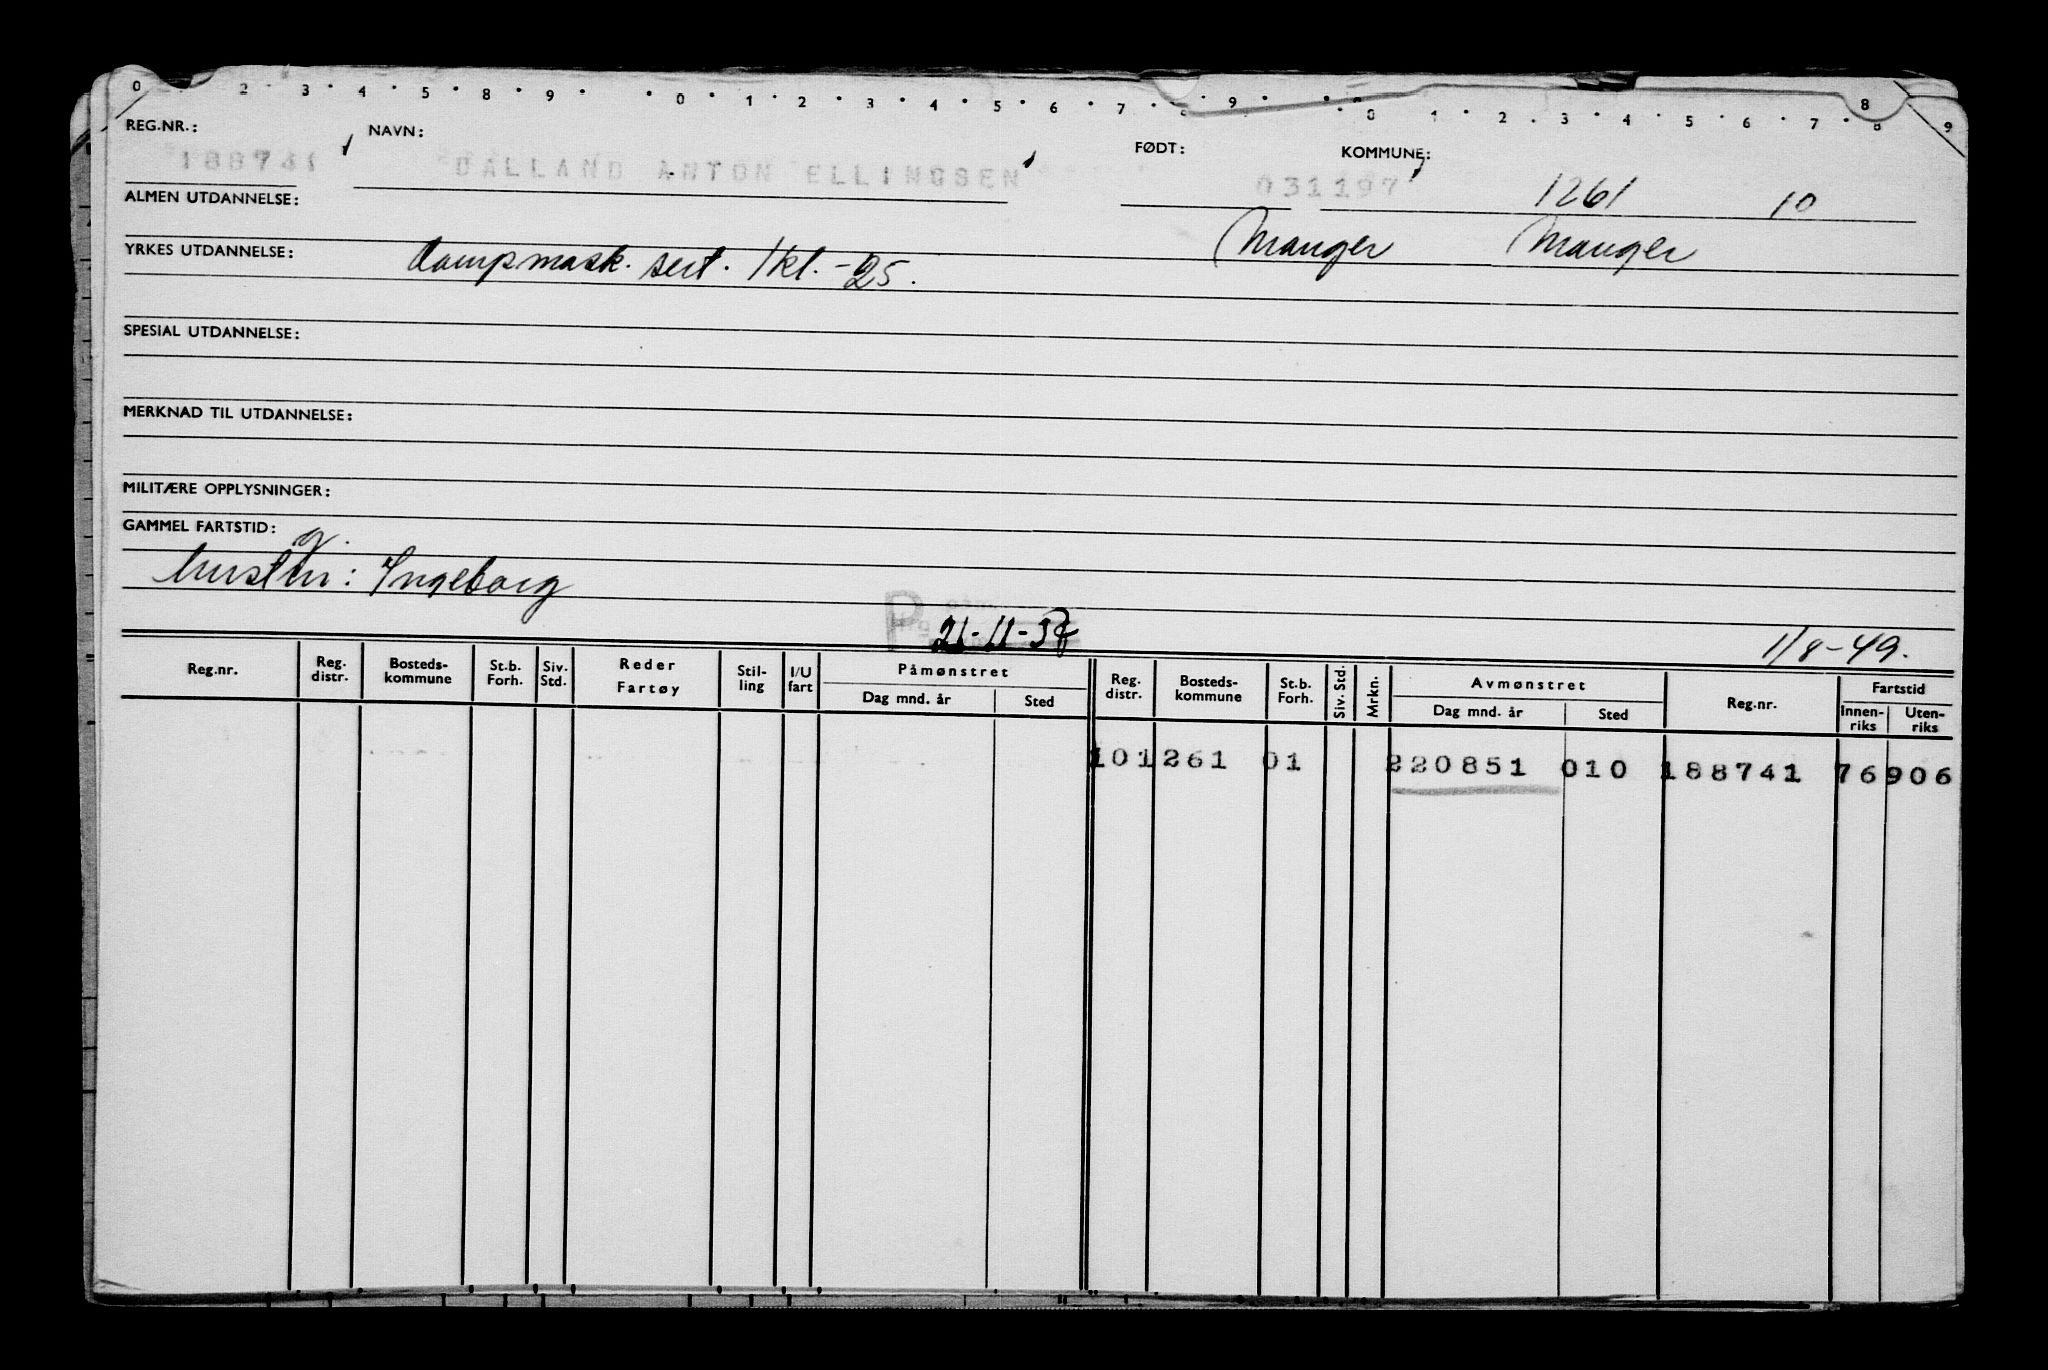 0 2 3 4 5 8 9 0 1 2 3 4 5 6 7 9 0 1 2 3 4 5 6 7 8 9
8
REG.NR.: NAVN: FØDT: KOMMUNE:
188741 DALLAND ANTON ELLINGSEN 031197 1261 10
ALMEN UTDANNELSE:
Manger Manger
YRKES UTDANNELSE: Dampmask. sert. 1kl. -25.
SPESIAL UTDANNELSE:
MERKNAD TIL UTDANNELSE:
MILITÆRE OPPLYSNINGER:
GAMMEL FARTSTID:
g.
hustru: Ingeborg
21-11-37
1/8-49.
Reg.nr. Reg. distr. Bosteds-kommune St.b. Forh. Siv. Std. Reder Fartøy Stil-ling I/U fart Påmønstret Dag mnd. år Sted Reg. distr. Bosteds-kommune St.b. Forh. Siv. Std. Mrkn. Avmønstret Dag mnd. år Sted Reg.nr. Fartstid Innen-riks Uten-riks
101261 01 220851 010 188741 76906